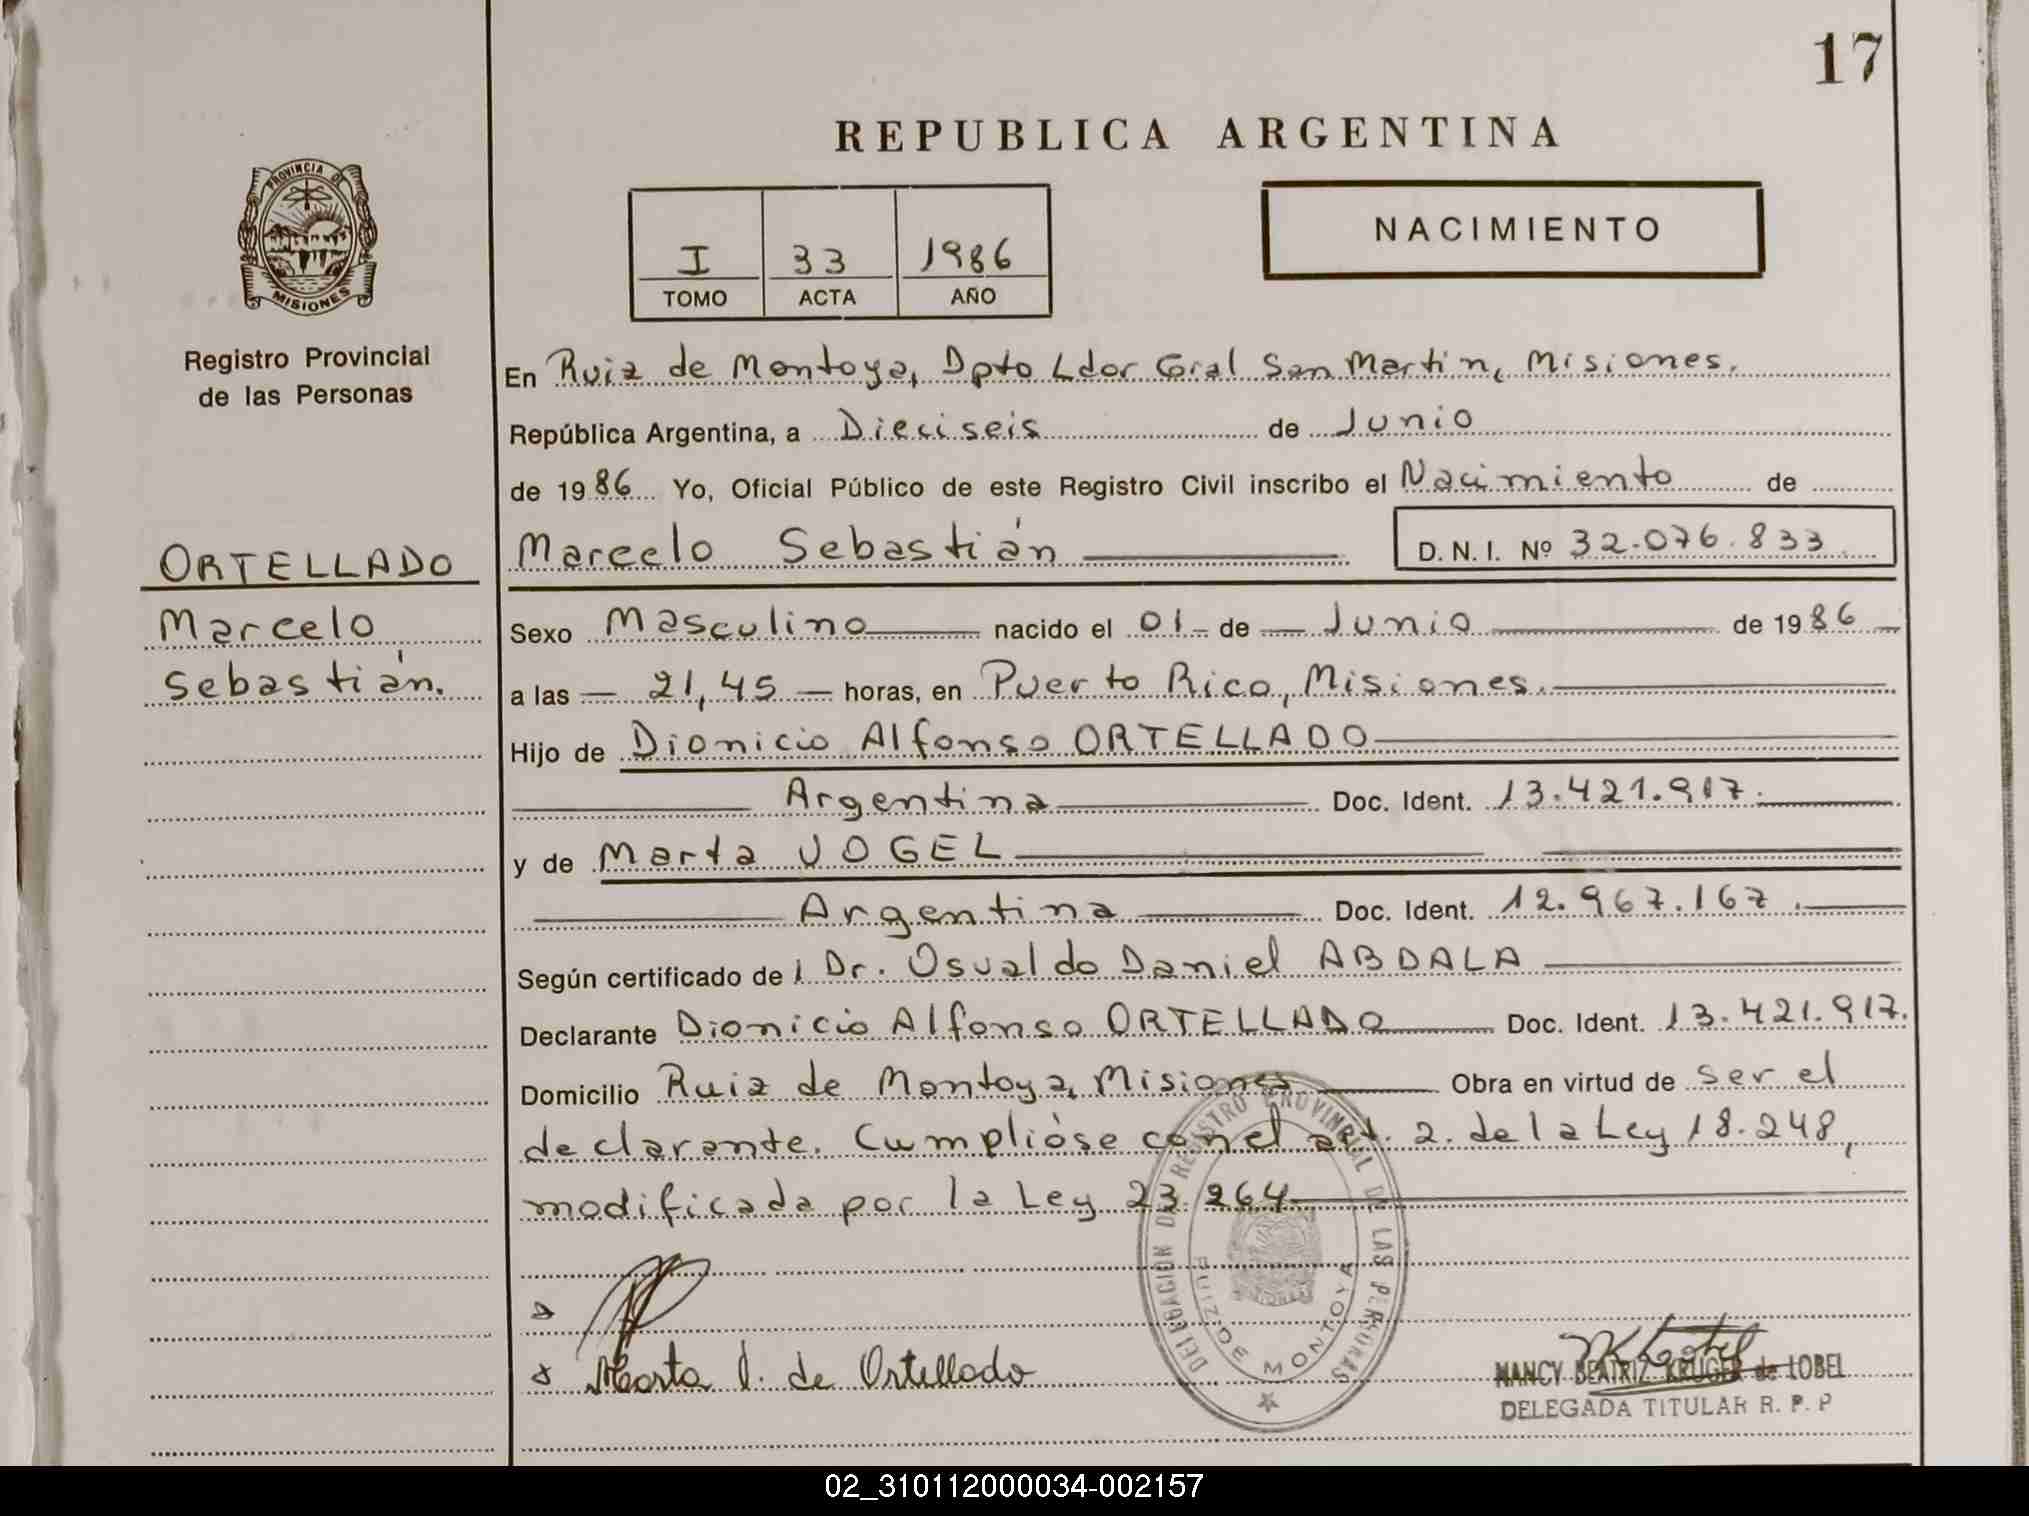 17
REPUBLICA ARGENTINA
PROVINCIA DE
MISIONES
Registro Provincial
de las Personas
I 33 1986
TOMO ACTA AÑO
NACIMIENTO
En Ruiz de Montoya, Dpto Ldor Gral San Martin, Misiones.
República Argentina, a Dieciseis de Junio
de 1986 Yo, Oficial Público de este Registro Civil inscribo el Nacimiento de
ORTELLADO
Marcelo
Sebastián.
Marcelo Sebastián
D. N. I. Nº 32.076.833
Sexo Masculino nacido el 01 de Junio de 1986
a las 21,45 horas, en Puerto Rico, Misiones.
Hijo de Dionicio Alfonso ORTELLADO
Argentina Doc. Ident. 13.421.917.
y de Marta VOGEL
Argentina Doc. Ident. 12.967.167.
Según certificado de l Dr. Osvaldo Daniel ABDALA
Declarante Dionicio Alfonso ORTELLADO Doc. Ident. 13.421.917.
Domicilio Ruiz de Montoya, Misiones Obra en virtud de ser el
declarante. Cumplióse con el art. 2. de la Ley 18.248,
modificada por la Ley 23.264
DELEGACION DEL REGISTRO PROVINCIAL DE LAS PERSONAS
RUIZ DE MONTOYA
Marta V. de Ortellado
NANCY BEATRIZ KRUGER de LOBEL
DELEGADA TITULAR R. P. P
02_310112000034-002157